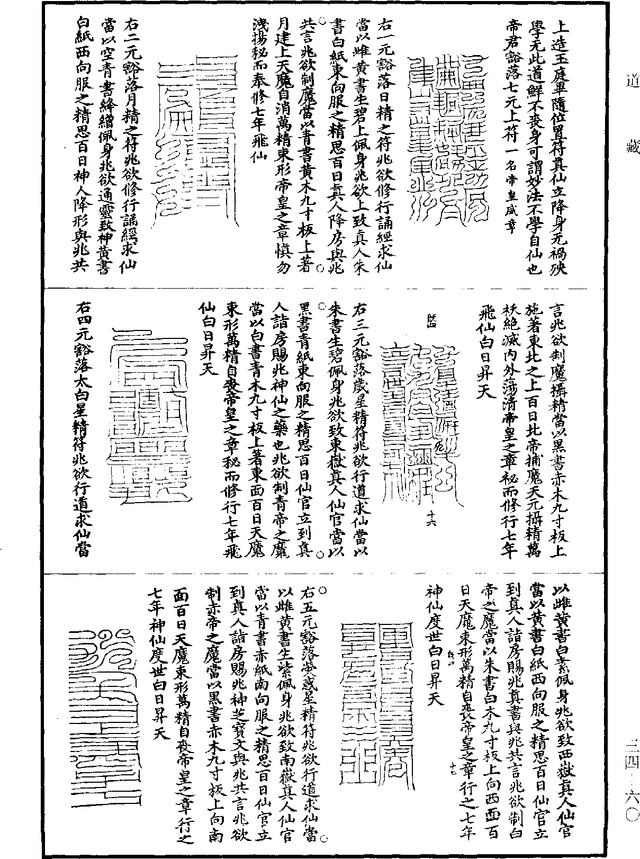 道藏
上造玉庭畢隨位置符真仙立降身无禍殃
學无此道鮮不喪身可謂妙法不學自仙也
帝君豁落七元上符一名帝皇威章
右一元豁落日精之符兆欲修行誦經求仙
當以雌黃書生碧上佩身兆欲上致真人朱
書白紙東向服之精思百日真人降房與兆
共言兆欲制魔當以青書黃木九寸板上著
月建上天魔自消萬精束形帝皇之章慎勿
洩揚秘而奉修七年飛仙
右二元豁落月精之符兆欲修行誦經求仙
當以空青書絳繒佩身兆欲通靈致神黃書
白紙西向服之精思百日神人降形與兆共
言兆欲制魔攝精當以黑書赤木九寸板上
施著東北之上百日北帝捕魔天元攝精萬
袄絕滅内外蕩清帝皇之章秘而修行七年
飛仙白日昇天
十六
右三元豁落歲星精符兆欲行道求仙當以
朱書生碧佩身兆欲致東嶽真人仙官當以
黑書青紙東向服之精思百日仙官立到真
人詣房賜兆神仙之藥也兆欲制青帝之魔
當以白書青木九寸板上著東面百日天魔
束形萬精自喪帝皇之章秘而修行七年飛
仙白日昇天
右四元豁落太白星精符兆欲行道求仙當
以雌黃書白素佩身兆欲致西嶽真人仙官
當以黃書白紙西向服之精思百日仙官立
到真人詣房賜兆真書與兆共言兆欲制白
帝之魔當以朱書白木九寸板上向西面百
日天魔束形萬精自喪帝皇之章行之七年
神仙度世白日昇天
十七
右五元豁落熒惑星精符兆欲行道求仙當
以雌黃書生紫佩身兆欲致南嶽真人仙官
當以青書赤紙南向服之精思百日仙官立
到真人詣房賜兆神芝寶文與兆共言兆欲
制赤帝之魔當以黑書赤木九寸板上向南
面百日天魔束形萬精自喪帝皇之章行之
七年神仙度世白日昇天
三四 六〇